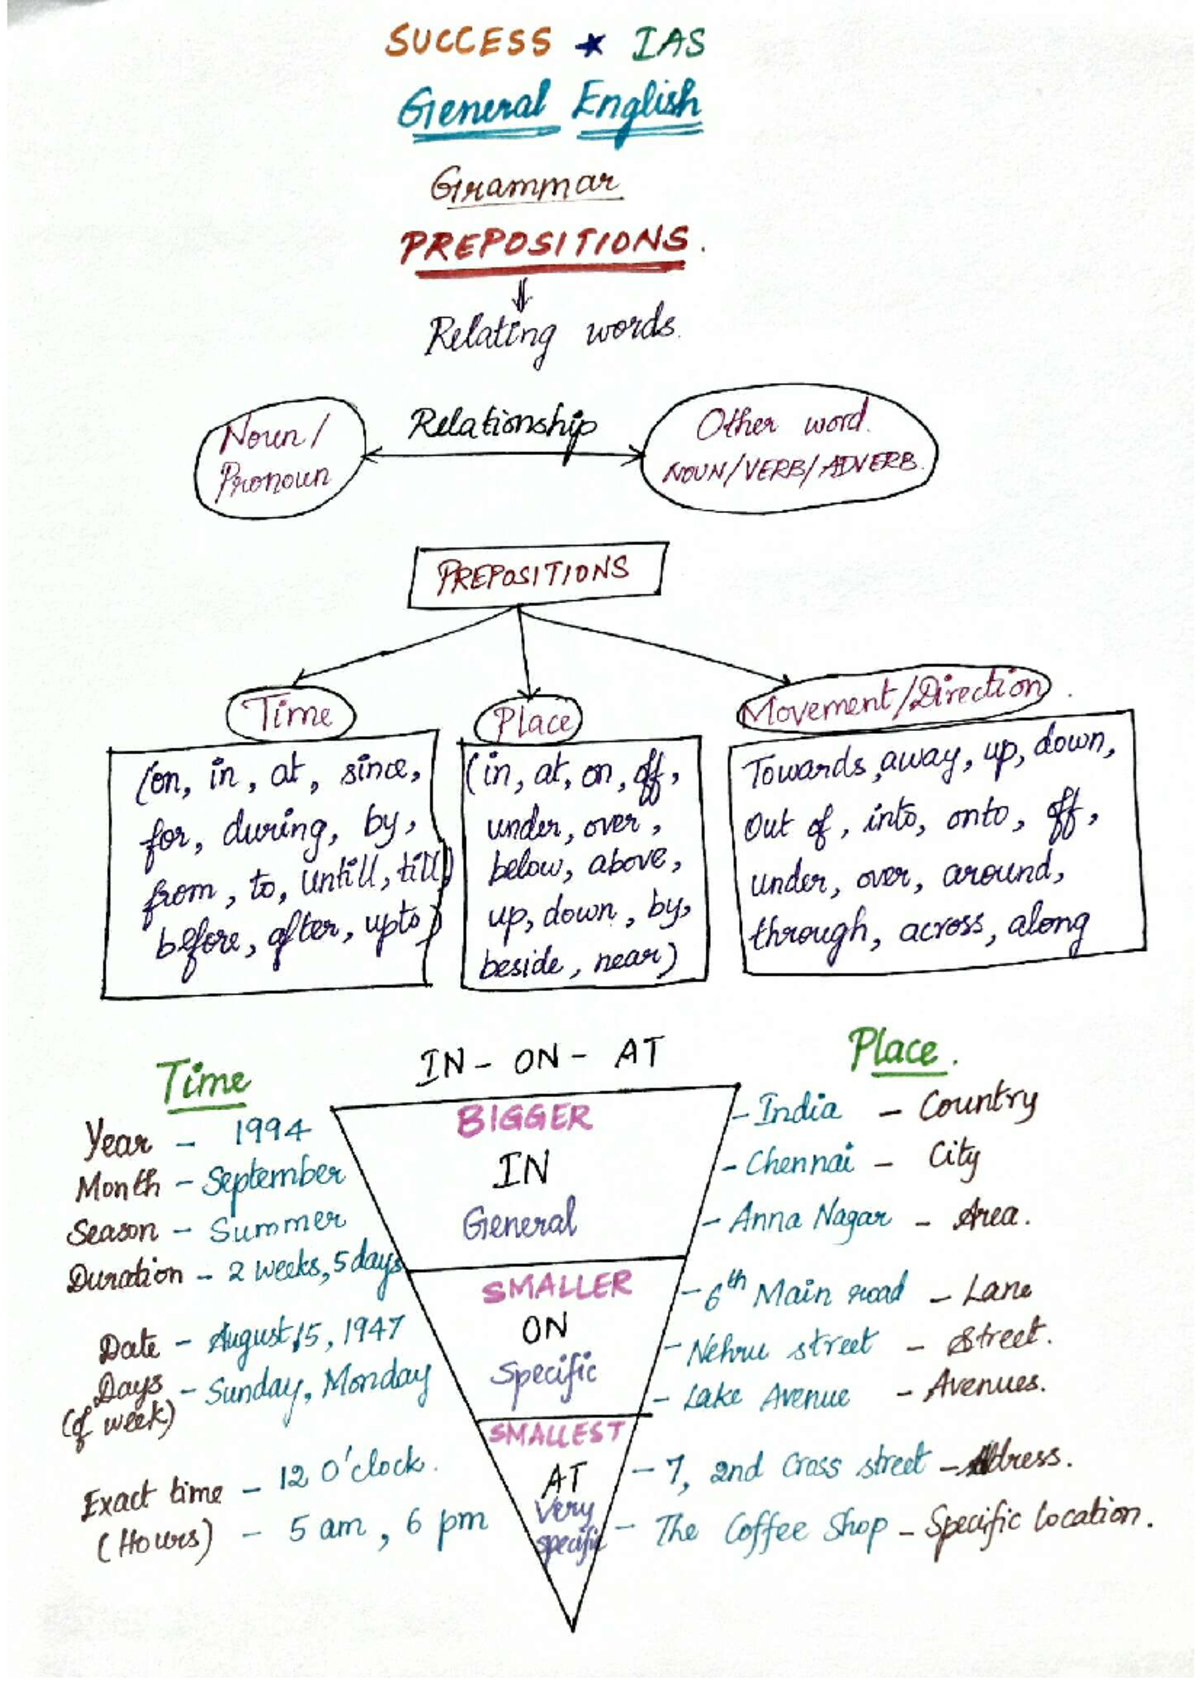 SUCCESS ★ IAS
General English
Grammar
PREPOSITIONS.
Relating words.
Noun / Pronoun
Relationship
Other word.
NOUN/VERB/ADVERB.
PREPOSITIONS
Time
(on, in, at, since,
for, during, by,
from, to, untill, till)
before, after, upto)
Place
(in, at, on, off,
under, over,
below, above,
up, down, by,
beside, near)
Movement/Direction.
Towards, away, up, down,
Out of, into, onto, off,
under, over, around,
through, across, along
IN - ON - AT
Time
Year - 1994
Month - September
Season - Summer
Duration - 2 weeks, 5 days
Date - August 15, 1947
Days (of week) - Sunday, Monday
Exact time - 12 O'clock.
(Hours) - 5 am, 6 pm
BIGGER
IN
General
SMALLER
ON
Specific
SMALLEST
AT
Very
specific
Place.
- India - Country
- Chennai - City
- Anna Nagar - Area.
- 6th Main road - Lane
- Nehru street - Street.
- Lake Avenue - Avenues.
- 7, 2nd Cross street - Address.
- The Coffee Shop - Specific location.